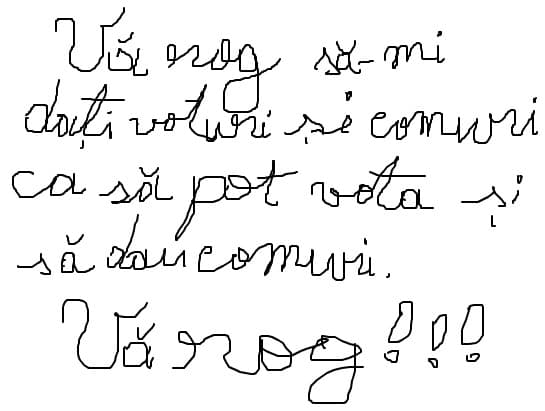 Vă rog să-mi
dați voturi și comuri
ca să pot vota și
să dau comuri.
Vă rog!!!